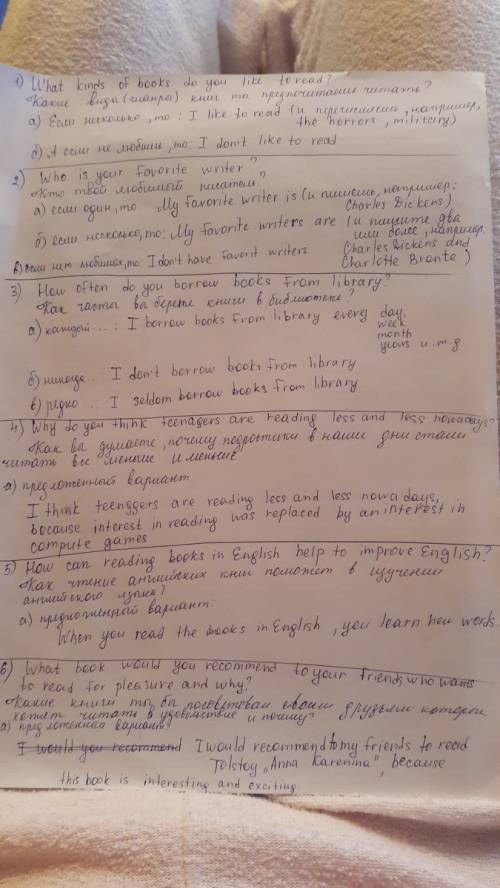 1) What kinds of books do you like to read?
Какие виды (жанры) книг ты предпочитаешь читать?
а) Если несколько, то: I like to read (и перечисляешь, например,
the horrors, military)
б) А если не любишь, то: I don't like to read
2) Who is your favorite writer?
Кто твой любимый писатель?
а) если один, то My favorite writer is (и пишешь, например:
Charles Dickens)
б) если несколько, то: My favorite writers are (и пишите два
или более, например:
Charles Dickens and
Charlotte Bronte)
в) если нет любимых, то I don't have favorit writers
3) How often do you borrow books from library?
Как часто вы берете книги в библиотеке?
а) каждый...: I borrow books from library every day,
week
month
years и.т.д
б) никогда...: I don't borrow books from library
в) редко...: I seldom borrow books from library
4) Why do you think teenagers are reading less and less nowadays?
Как вы думаете, почему подростки в наши дни стали
читать все меньше и меньше
а) предложенный вариант
I think teenggers are reading less and less nowadays,
bocause interest in reading was replaced by an interest in
compute games
5) How can reading books in English help to improve English?
Как чтение английских книг поможет в изучении
английского языка?
а) предложенный вариант:
When you read the books in English, you learn new words.
6) What book would you recommend to your friends who wants
to read for pleasure and why?
Какие книги ты бы посоветовал своим друзьям которые
хотят читать в удовольствие и почему?
а) предложенный вариант:
I would you recommend I would recommend to my friends to read
Tolstoy „Anna Karenina", because
this book is interesting and exciting